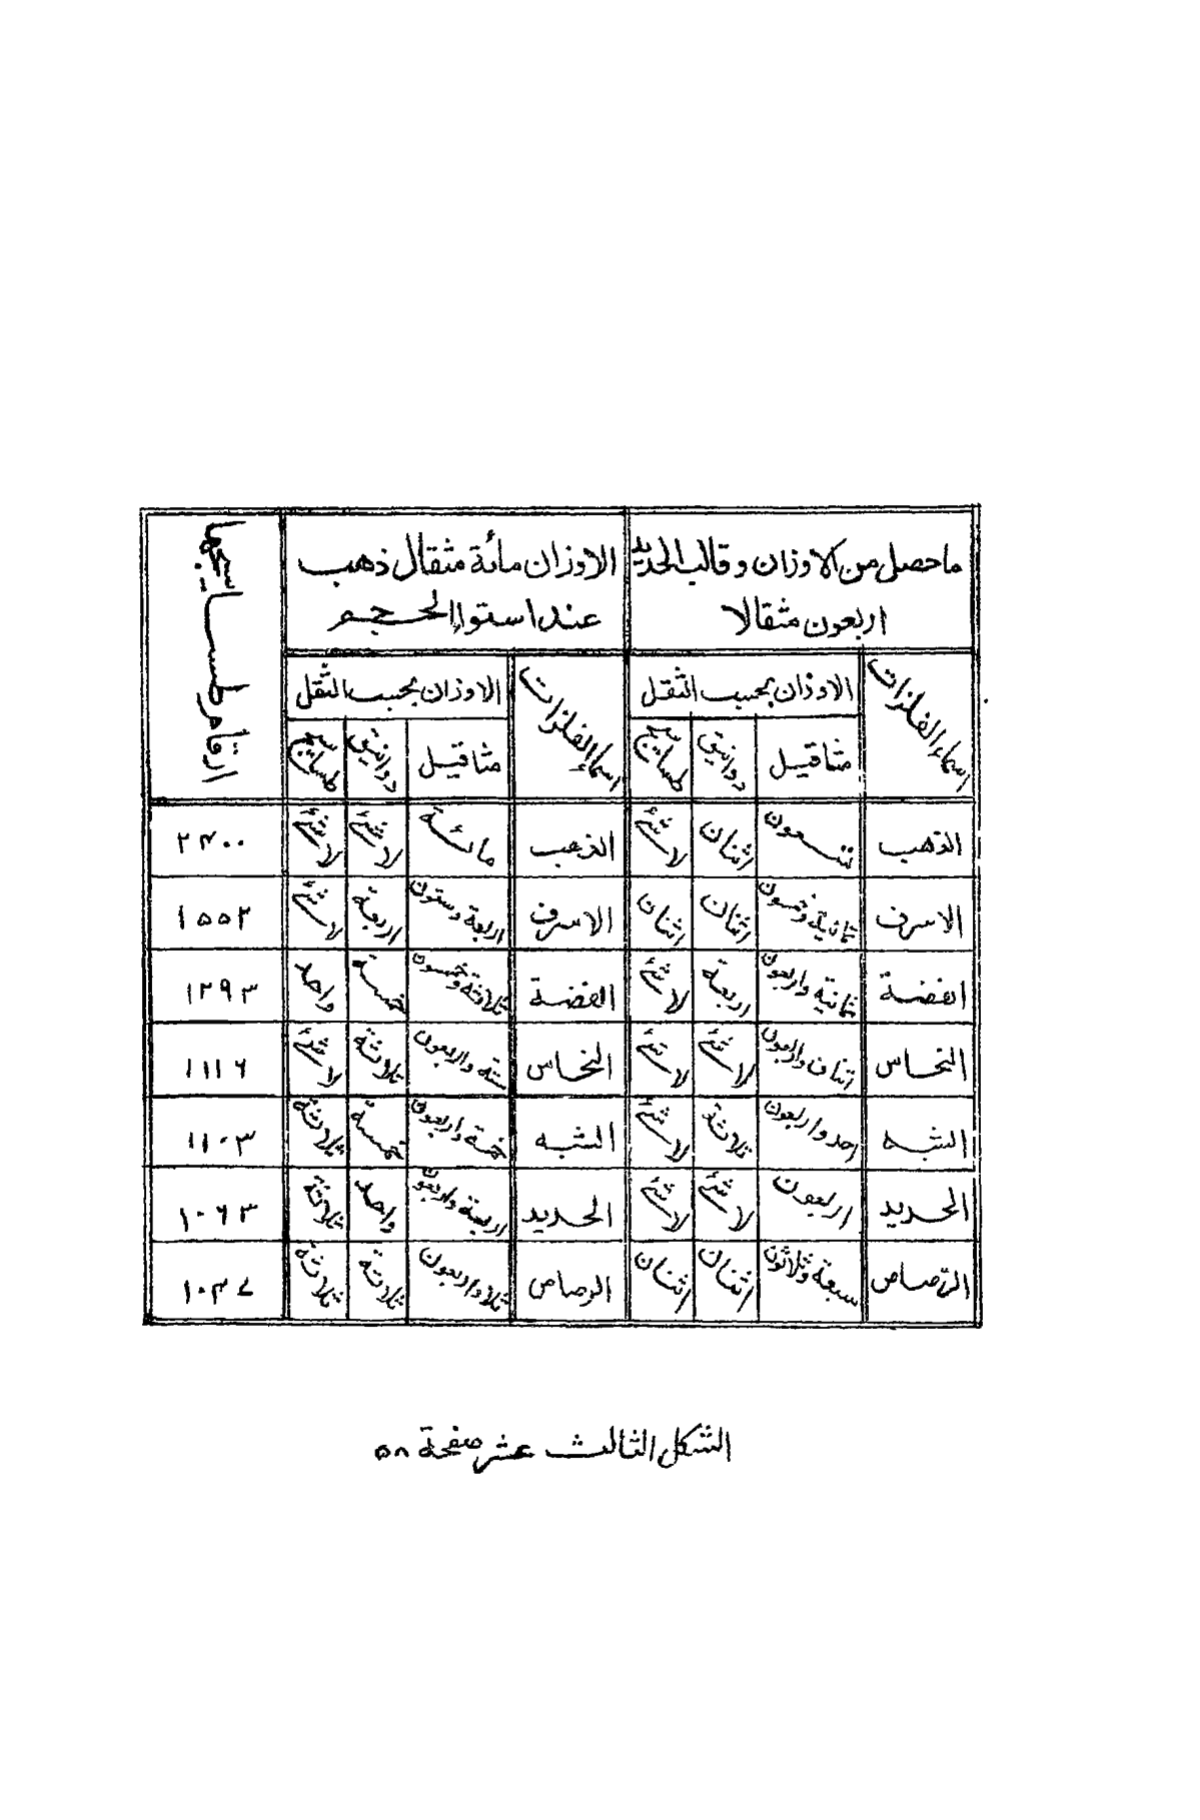 ما حصل من الاوزان وقالب الحديد
اربعون مثقالا
الاوزان مائة مثقال ذهب
عند استواء الحجم
ارقام طساسيجها
اسماء الفلزات
الاوزان بحسب الثقل
اسماء الفلزات
الاوزان بحسب الثقل
مثاقيل دوانيق طساسيج مثاقيل دوانيق طساسيج
الذهب تسعون اثنان لا شئ الذهب مائة لا شئ لا شئ ٢٤٠٠
الاسرف ثمانية وخمسون اثنان اثنان الاسرف اربعة وستون اربعة لا شئ ١٥٥٢
الفضة ثمانية واربعون اربعة لا شئ الفضة ثلاثة وخمسون خمسة واحد ١٢٩٣
النحاس اثنان واربعون لا شئ لا شئ النحاس ستة واربعون ثلاثة لا شئ ١١١٦
الشبه احد واربعون ثلاثة لا شئ الشبه خمسة واربعون خمسة ثلاثة ١١٠٣
الحديد اربعون لا شئ لا شئ الحديد اربعة واربعون واحد ثلاثة ١٠٦٣
الرصاص سبعة وثلاثون اثنان اثنان الرصاص ثلا واربعون ثلاثة ثلاثة ١٠٤٧
الشكل الثالث عشر صفحة ٥٨